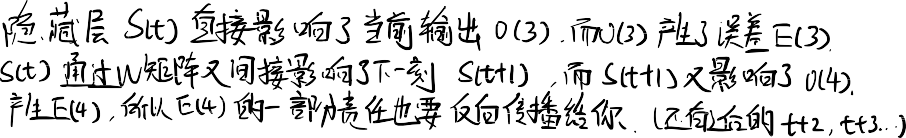 隐藏层 S(t) 直接影响了当前输出 O(3),而O(3) 产生了误差 E(3).
S(t) 通过W矩阵又间接影响了下一刻 S(t+1),而 S(t+1) 又影响了 O(4).
产生E(4),所以E(4)的一部分责任也要反向传播给你.(还有后的 t+2, t+3...)